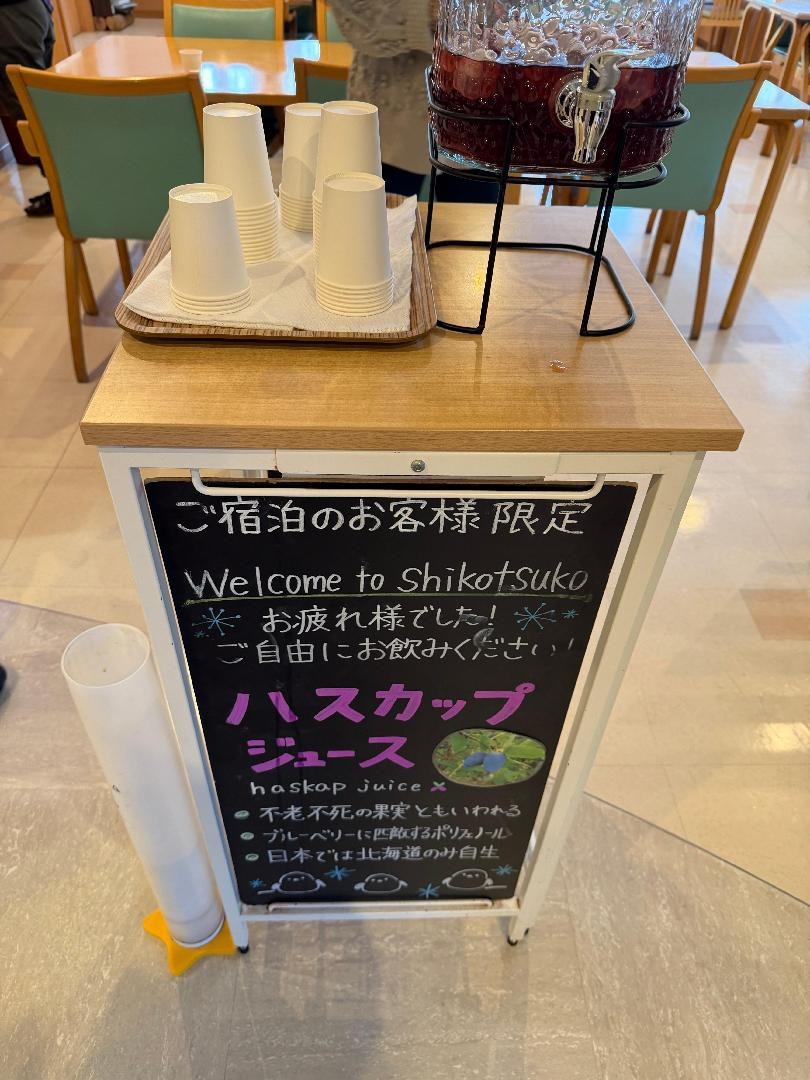 ご宿泊のお客様限定
Welcome to Shikotsuko
お疲れ様でした!
ご自由にお飲みください!
ハスカップ
ジュース
haskap juice
不老不死の果実ともいわれる
ブルーベリーに匹敵するポリフェノール
日本では北海道のみ自生